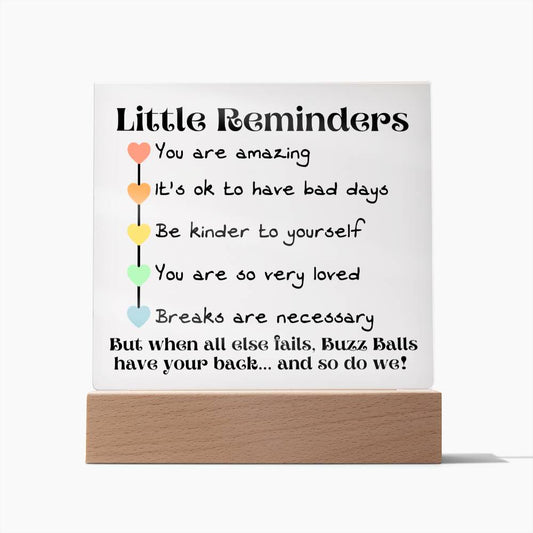 Little Reminders
You are amazing
It's ok to have bad days
Be kinder to yourself
You are so very loved
Breaks are necessary
But when all else fails, Buzz Balls
have your back... and so do we!